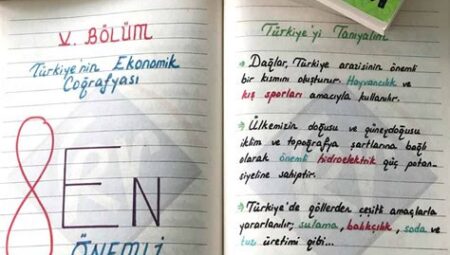 V. BÖLÜM
Türkiye'nin Ekonomik
Coğrafyası
8 EN
ÖNEMLİ
Türkiye'yi Tanıyalım
→ Dağlar, Türkiye arazisinin önemli
bir kısmını oluşturur. Hayvancılık ve
kış sporları amacıyla kullanılır.
→ Ülkemizin doğusu ve güneydoğusu
iklim ve topoğrafya şartlarına bağlı
olarak önemli hidroelektrik güç potan-
siyeline sahiptir.
→ Türkiye'de göllerden çeşitli amaçlarla
yararlanılır; sulama, balıkçılık, soda ve
tuz üretimi gibi...